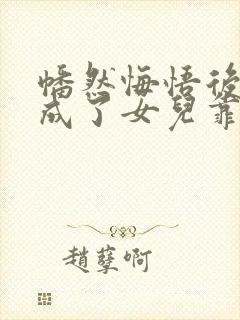 幡然悔悟後
成了女兒靠
趙孽啊